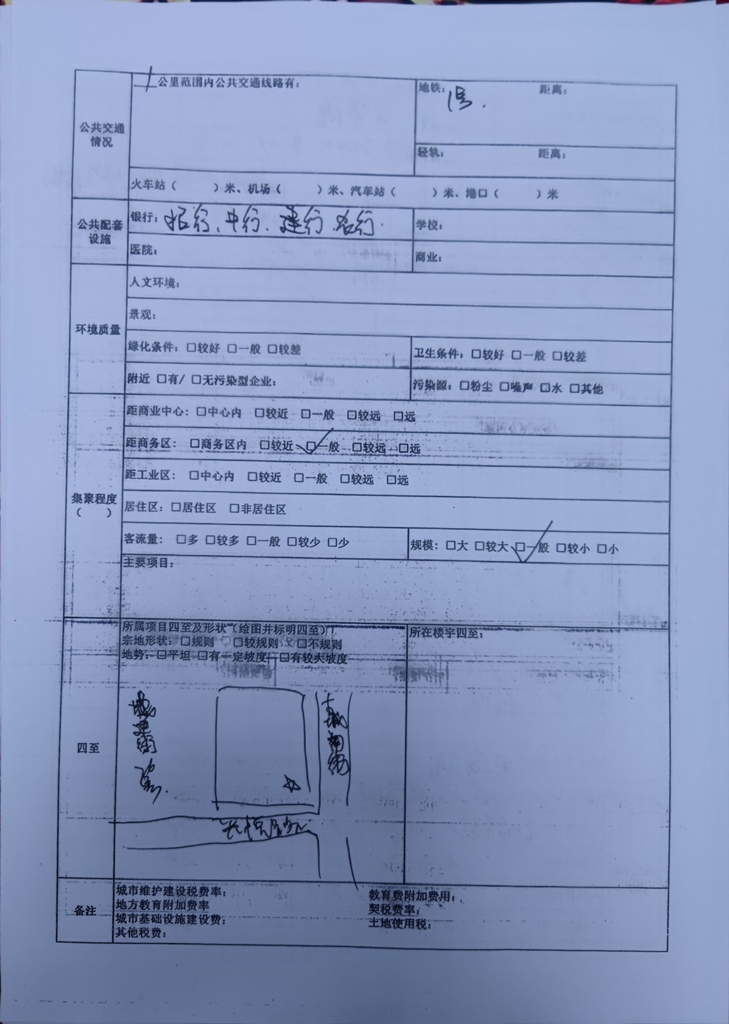 公共交通情况
1公里范围内公共交通线路有：
地铁：1号. 距离：
轻轨： 距离：
火车站（ ）米、机场（ ）米、汽车站（ ）米、港口（ ）米
公共配套设施
银行：招行、中行、建行 农行. 学校：
医院： 商业：
环境质量
人文环境：
景观：
绿化条件：□较好 □一般 □较差 卫生条件：□较好 □一般 □较差
附近 □有/ □无污染型企业： 污染源：□粉尘 □噪声 □水 □其他
集聚程度（ ）
距商业中心：□中心内 □较近 □一般 □较远 □远
距商务区：□商务区内 □较近 ☑一般 □较远 □远
距工业区：□中心内 □较近 □一般 □较远 □远
居住区：□居住区 □非居住区
客流量：□多 □较多 □一般 □较少 □少 规模：□大 □较大 ☑一般 □较小 □小
主要项目：
四至
所属项目四至及形状（绘图并标明四至）：
宗地形状：□规则 □较规则 □不规则
地势：□平坦 □有一定坡度 □有较大坡度
所在楼宇四至：
备注
城市维护建设税费率： 教育费附加费用：
地方教育附加费率 契税费率：
城市基础设施建设费： 土地使用税：
其他税费：